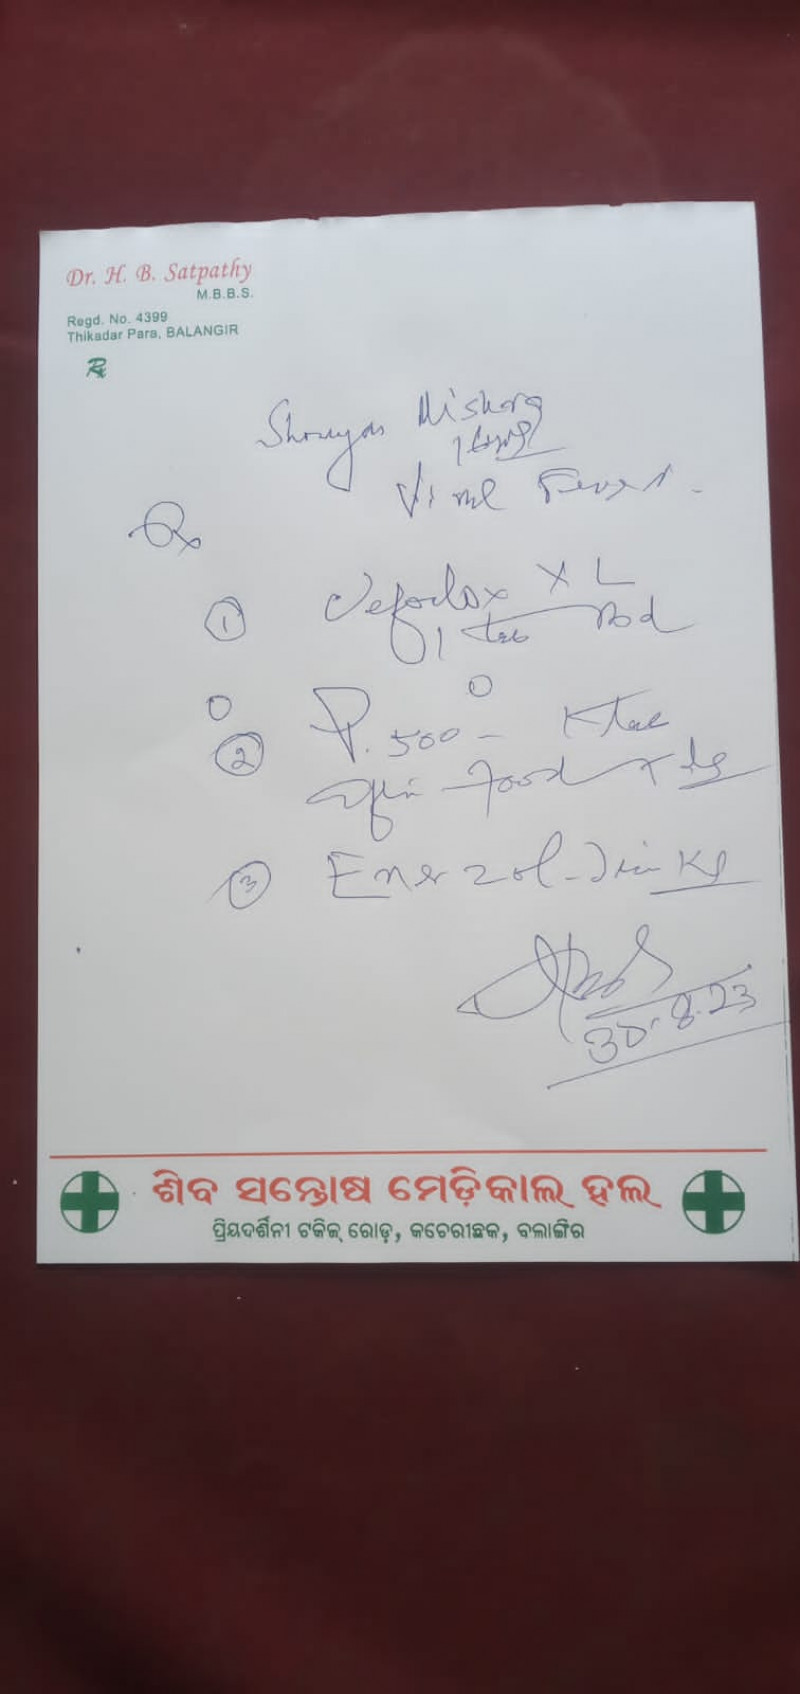 Dr. H. B. Satpathy
M.B.B.S.
Regd. No. 4399
Thikadar Para, BALANGIR
Rx
Mishra
Viral Fever
Rx
① Cefoclox XL
1 tab
② P. 500 -
food x
③ Enerzol Drinks
30.8.23
ଶିବ ସନ୍ତୋଷ ମେଡ଼ିକାଲ୍ ହଲ
ପ୍ରିୟଦର୍ଶିନୀ ଟକିଜ୍ ରୋଡ଼, କଚେରୀଛକ, ବଲାଙ୍ଗିର